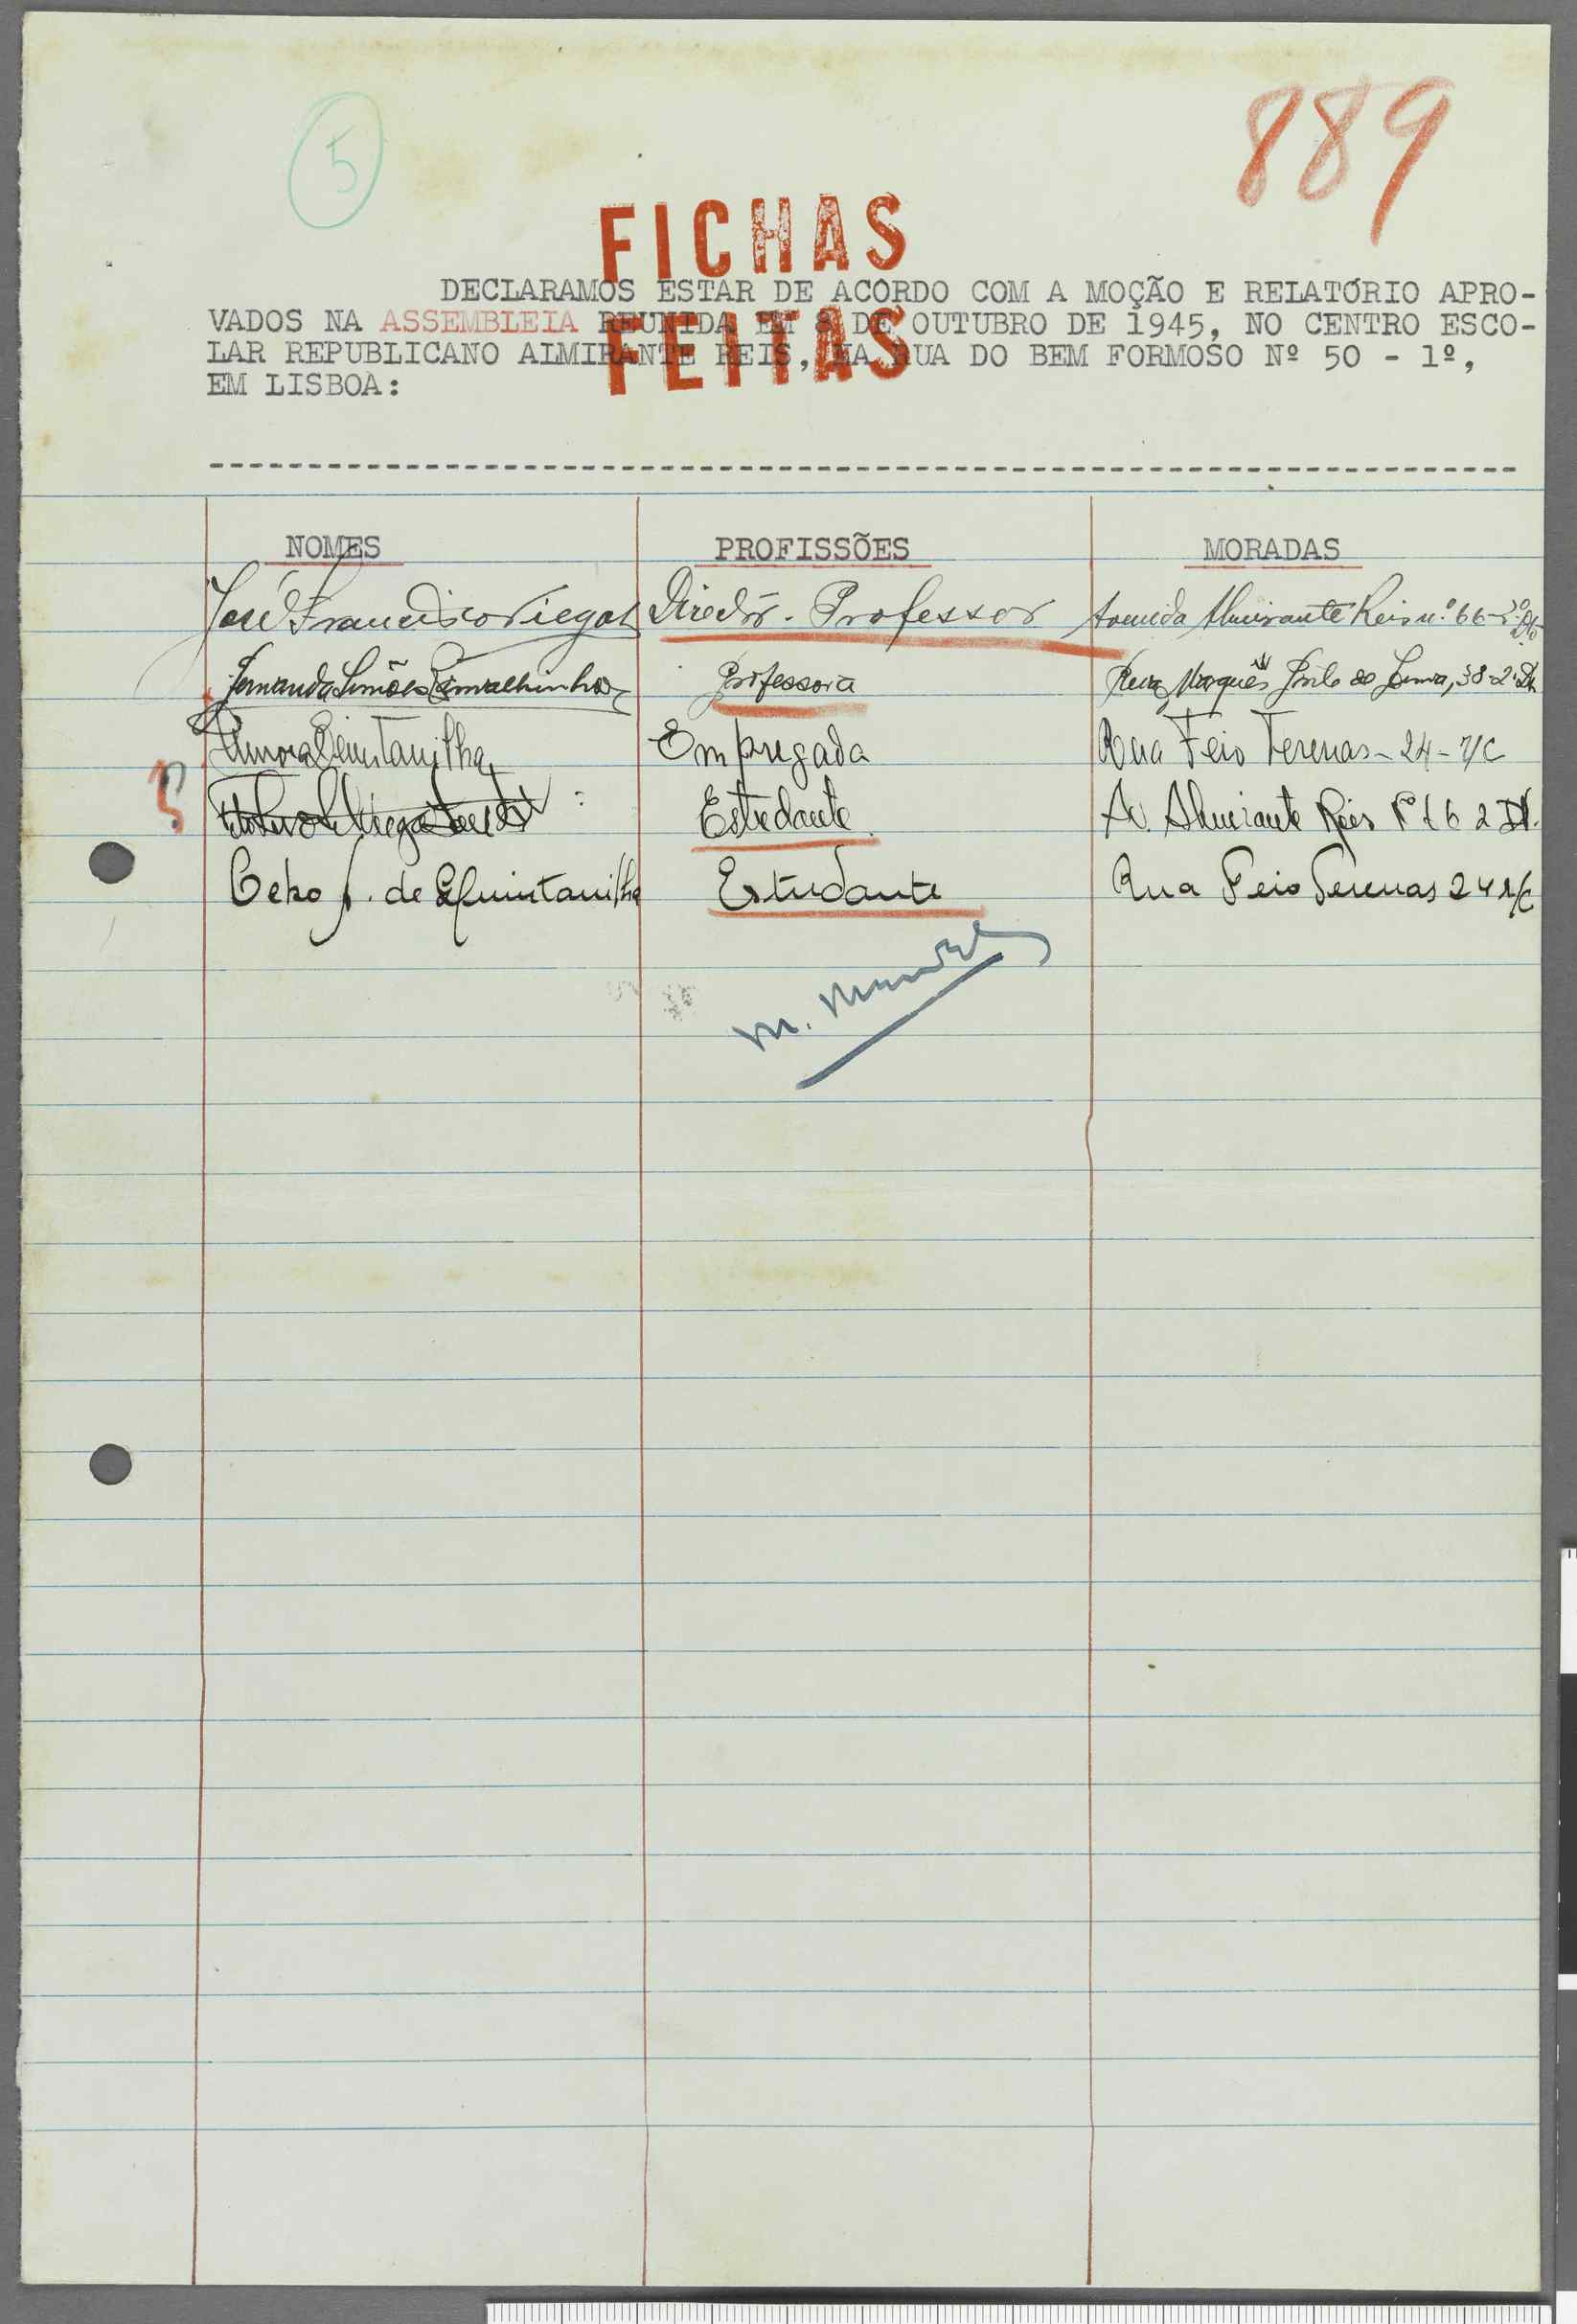 5
889
FICHAS
FEITAS
DECLARAMOS ESTAR DE ACÔRDO COM A MOÇÃO E RELATÓRIO APRO-
VADOS NA ASSEMBLEIA REUNIDA EM 8 DE OUTUBRO DE 1945, NO CENTRO ESCO-
LAR REPUBLICANO ALMIRANTE REIS, NA RUA DO BEM FORMOSO Nº 50 - 1º,
EM LISBOA:
NOMES PROFISSÕES MORADAS
José Francisco Viegas Director - Professor Avenida Almirante Reis n.º 66-2º Dto
Fernanda Simões Carvalhinho Professora Rua Marquês da Silva, 38-2º Dt
Quintanilha Empregada Rua Feio Terenas - 24 - r/c
? Estudante Av. Almirante Reis Nº 66 2 Dt.
Celso J. de Quintanilha Estudante Rua Feio Terenas 24 r/c